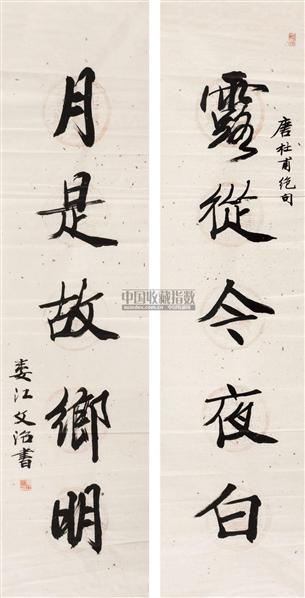 露從今夜白
唐杜甫絕句
月是故鄉明
婁江文治書
中国收藏指数